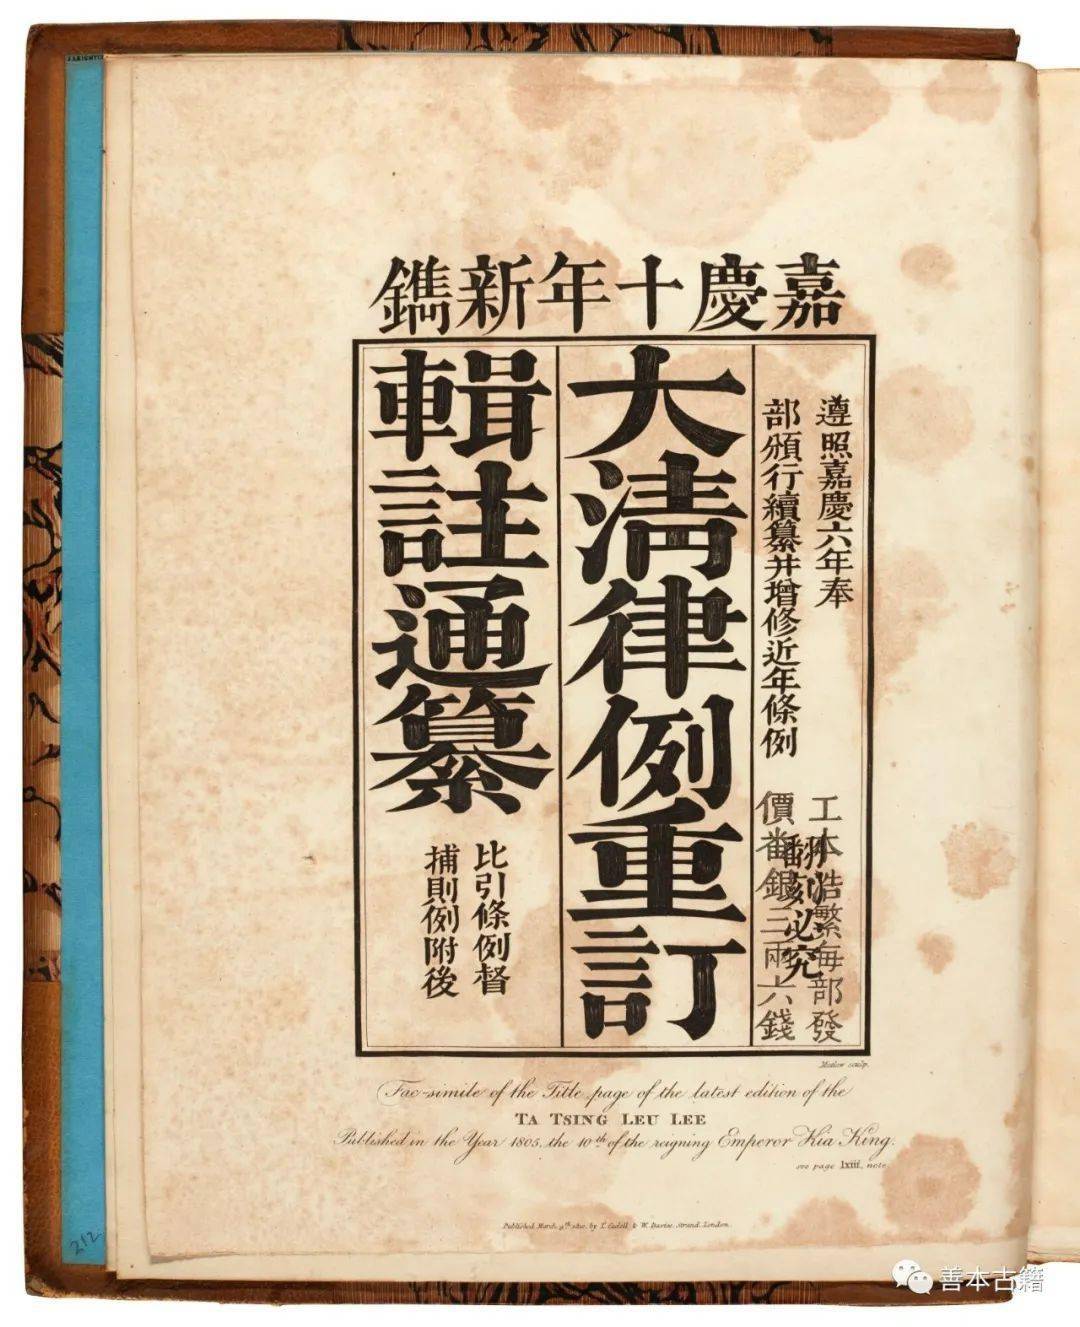 嘉慶十年新鐫
遵照嘉慶六年奉
部頒行續纂并增修近年條例
工本浩繁每部發
價番銀三兩六錢
翻刻必究
大清律例重訂
輯註通纂
比引條例督
捕則例附後
Fac-simile of the Title page of the latest edition of the
TA TSING LEU LEE
Published in the Year 1805, the 10th of the reigning Emperor Kia King.
see page lxiii, note
Published March 9th 1810, by T. Cadell & W. Davies, Strand, London.
212
善本古籍